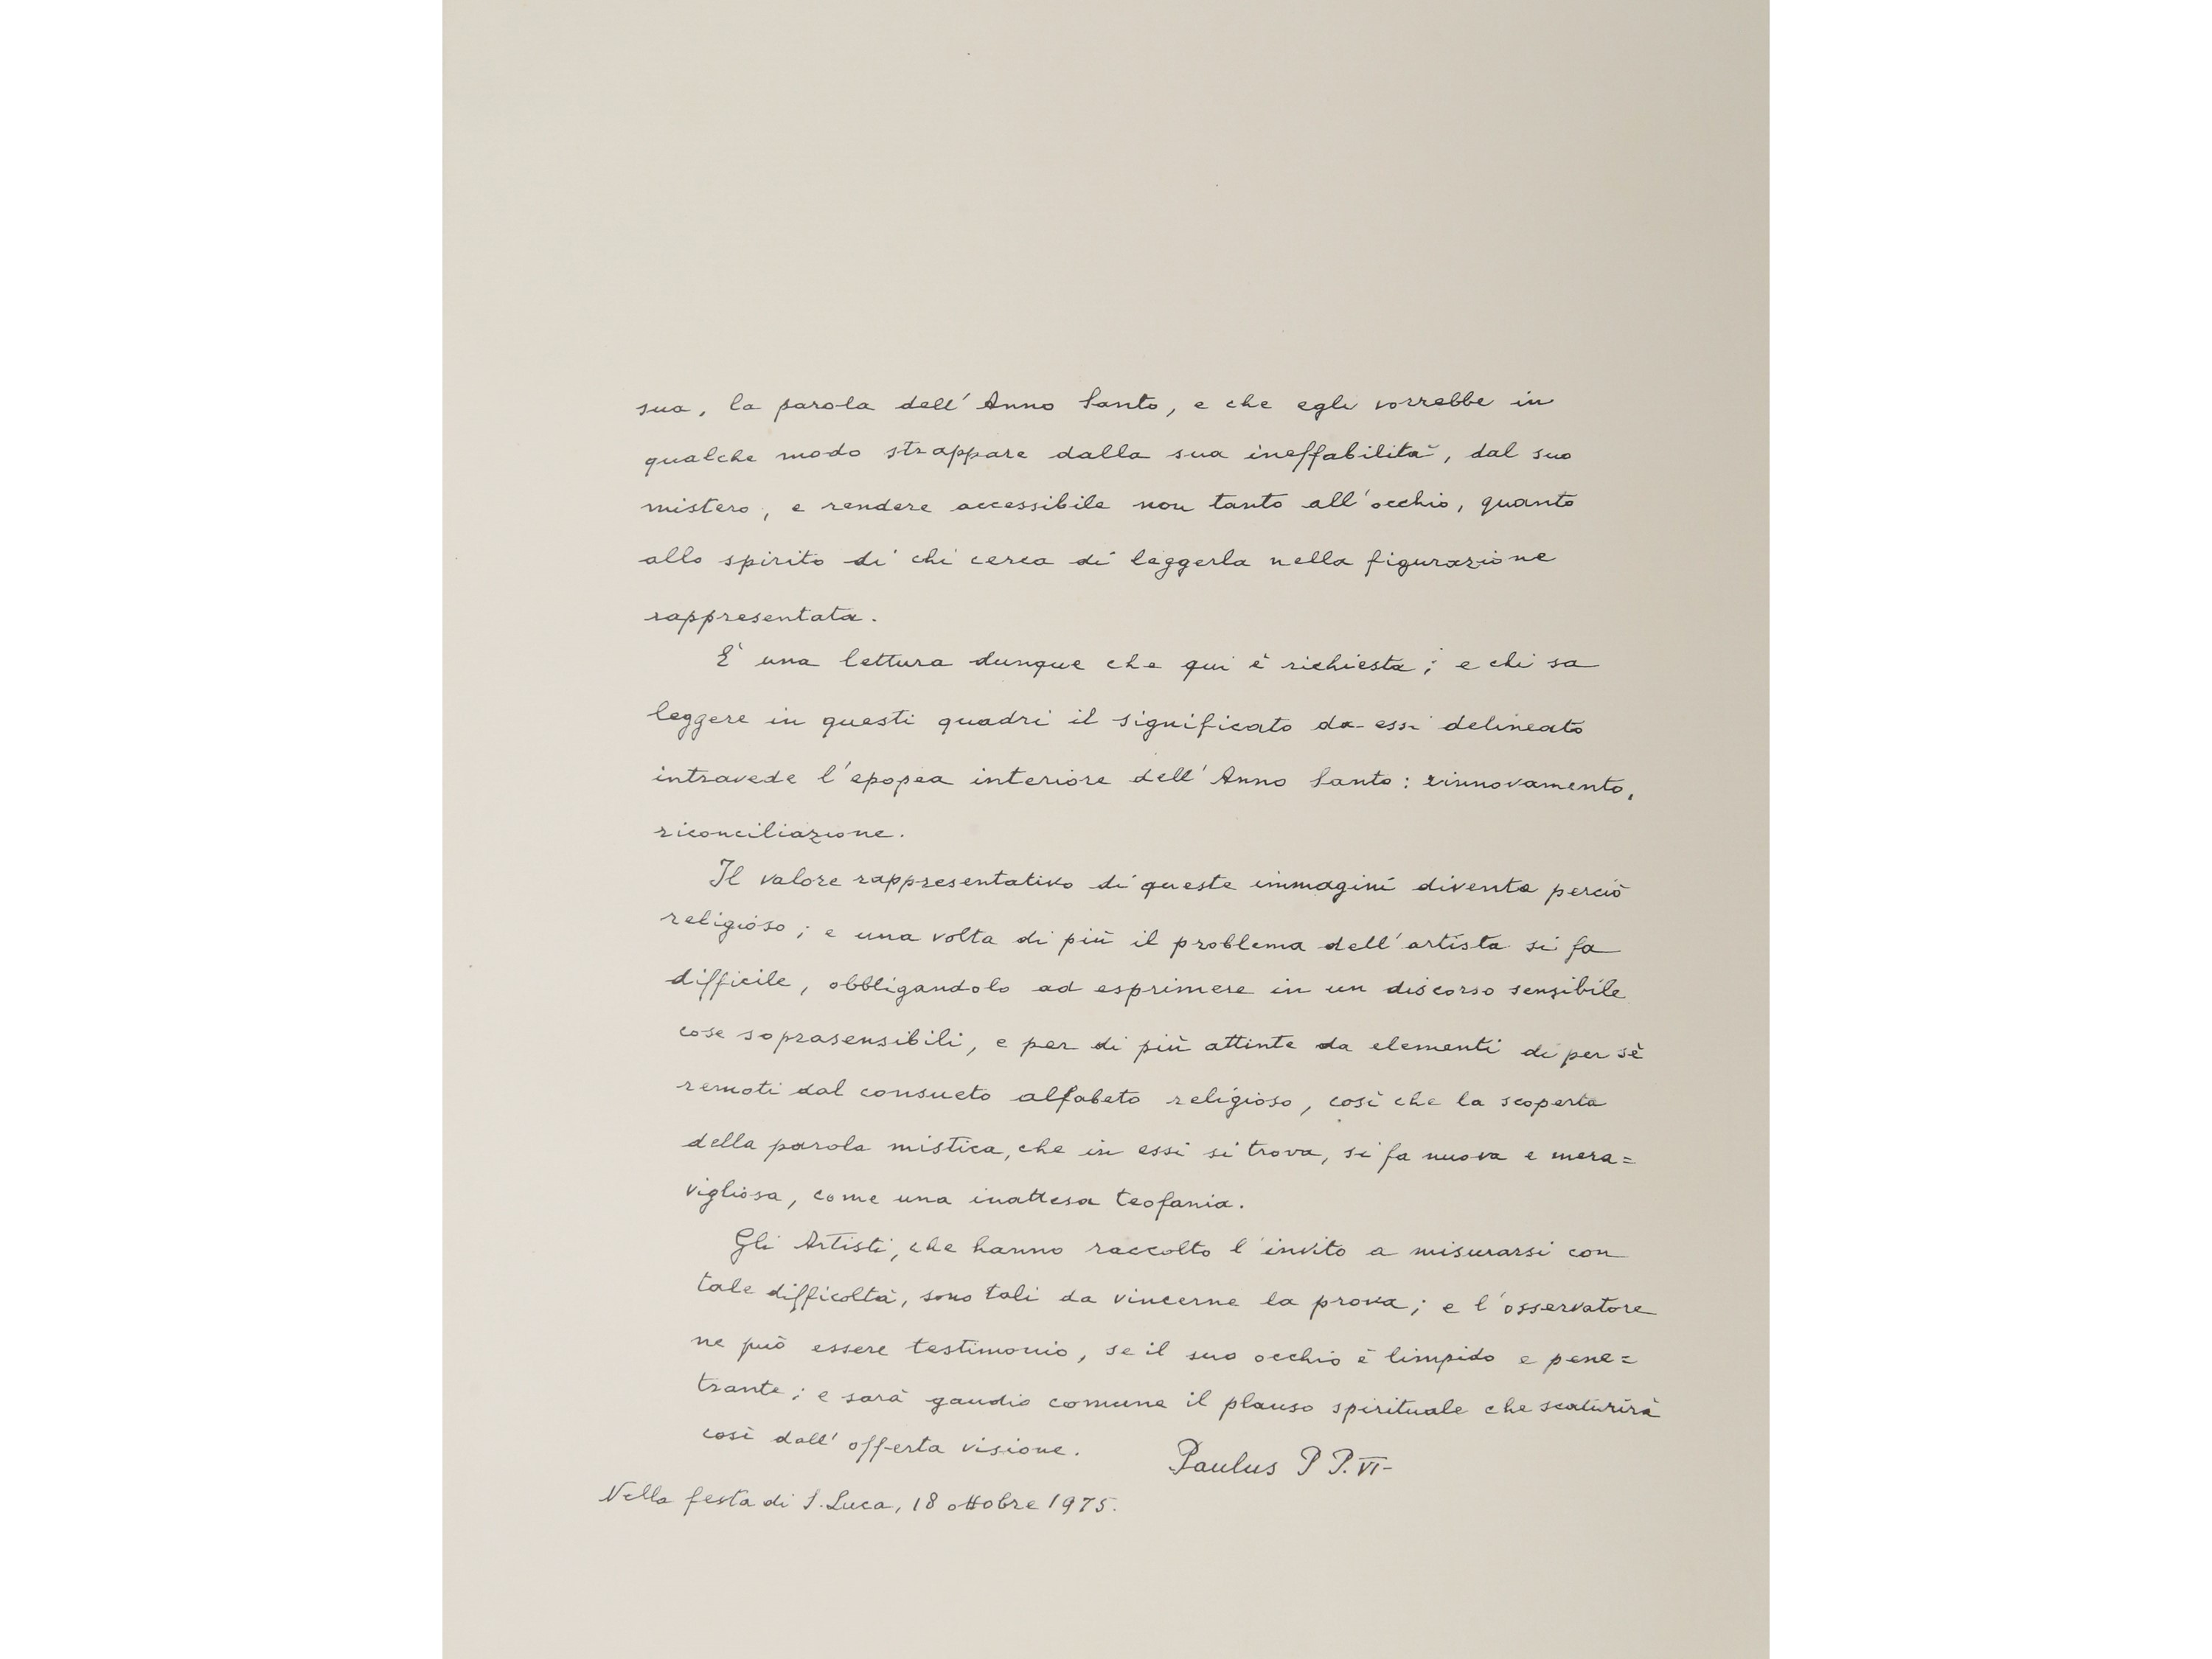 sua, la parola dell'Anno Santo, e che egli vorrebbe in
qualche modo strappare dalla sua ineffabilità, dal suo
mistero, e rendere accessibile non tanto all'occhio, quanto
allo spirito di chi cerca di leggerla nella figurazione
rappresentata.
È una lettura dunque che qui è richiesta; e chi sa
leggere in questi quadri il significato da essi delineato
intravede l'epopea interiore dell'Anno Santo: rinnovamento,
riconciliazione.
Il valore rappresentativo di queste immagini diventa perciò
religioso; e una volta di più il problema dell'artista si fa
difficile, obbligandolo ad esprimere in un discorso sensibile
cose soprasensibili, e per di più attinte da elementi di per sè
remoti dal consueto alfabeto religioso, così che la scoperta
della parola mistica, che in essi si trova, si fa nuova e mera=
vigliosa, come una inattesa teofania.
Gli Artisti, che hanno raccolto l'invito a misurarsi con
tale difficoltà, sono tali da vincerne la prova; e l'osservatore
ne può essere testimonio, se il suo occhio è limpido e pene=
trante; e sarà gaudio comune il plauso spirituale che scaturirà
così dall'offerta visione.
Paulus P P. VI-
Nella festa di S. Luca, 18 ottobre 1975.